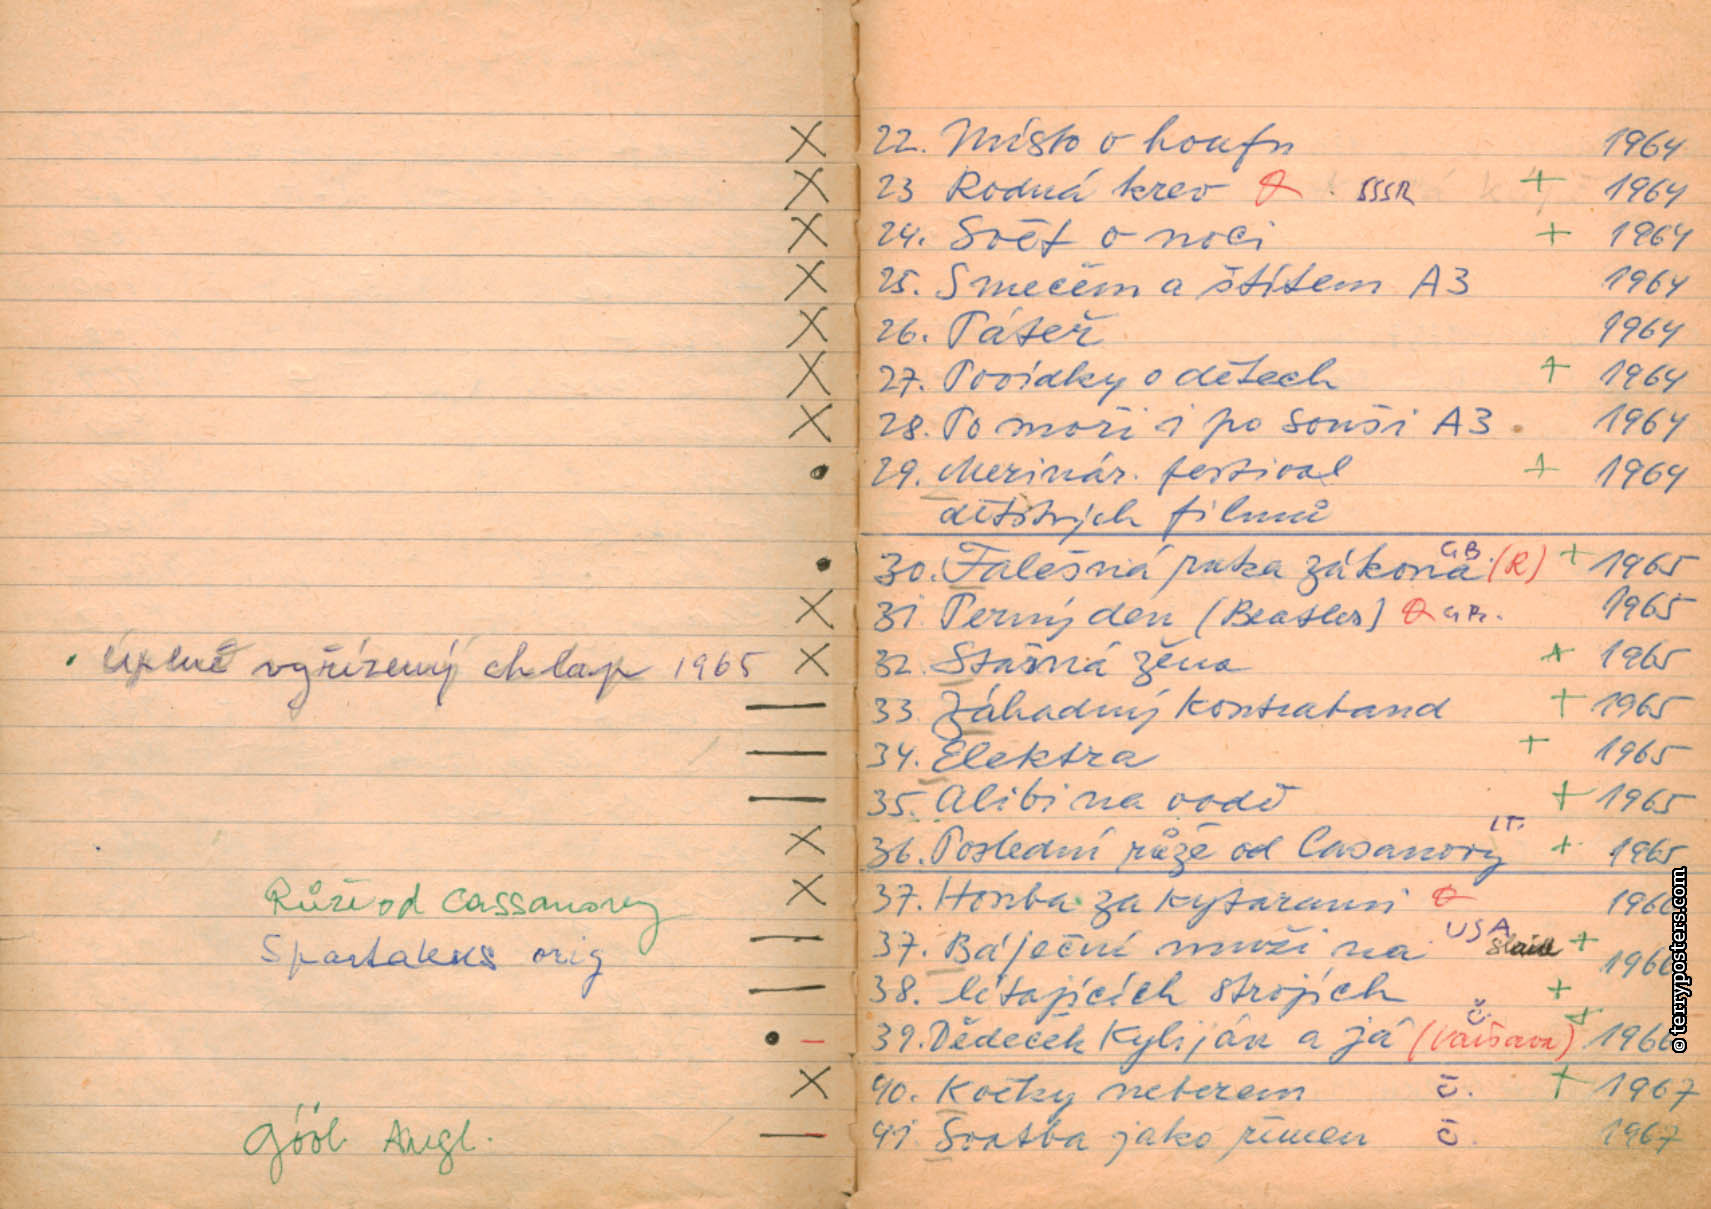 Úplně vyřízený chlap 1965
Růže od Cassanovy
Spartakus orig
Góól Angl.
22. Místo v houfu 1964
23 Rodná krev SSSR + 1964
24. Svět v noci + 1964
25. S mečem a štítem A3 1964
26. Páteř 1964
27. Povídky o dětech + 1964
28. Po moři i po souši A3 1964
29. Mezinár. festival + 1964
dětských filmů
30. Falešná ruka zákona GB. (R) + 1965
31 Perný den (Beatles) GB. 1965
32. Šťastná žena + 1965
33. Záhadný kontraband + 1965
34. Elektra + 1965
35. Alibi na vodě + 1965
36. Poslední růže od Casanovy IT. + 1965
37. Honba za kytarami 1966
37. Báječní muži na USA + 1966
38. létajících strojích +
39. Dědeček Kyliján a já č. (Varšava) + 1966
40. Kočky neberem č. + 1967
41 Svatba jako řemen č. 1967
© terryposters.com